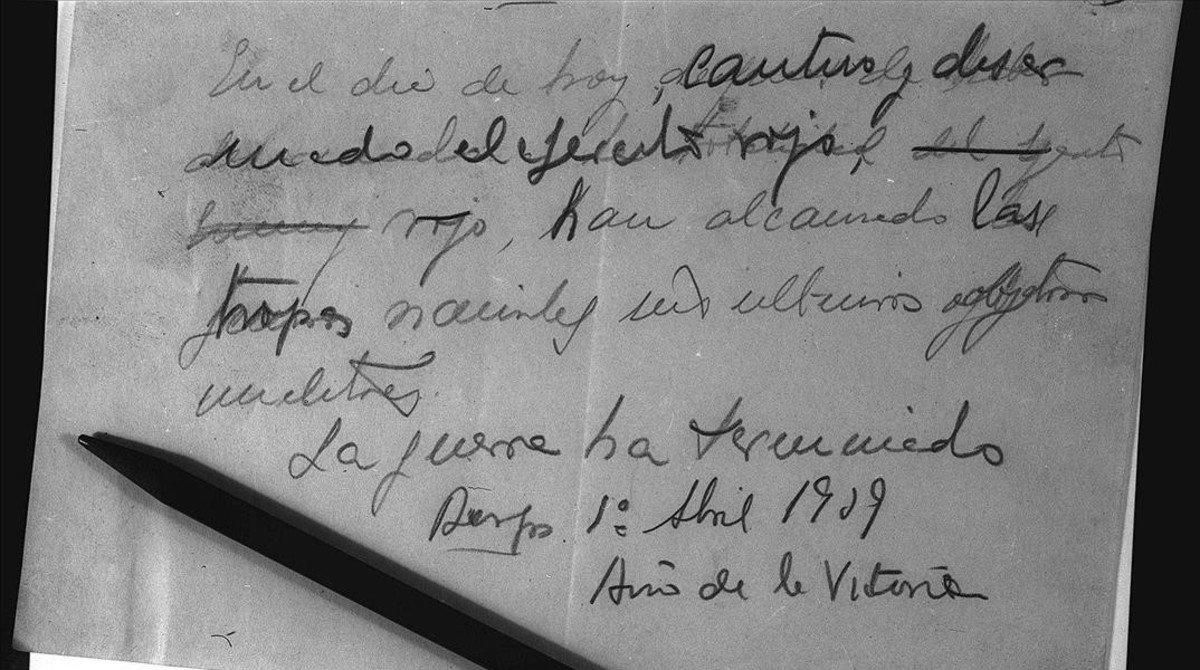 En el dia de hoy, cautivo y desar
mado el Ejercito rojo, del Ejercito
rojo, han alcanzado las
tropas nacionales sus ultimos objetivos
militares.
La guerra ha terminado
Burgos 1º Abril 1939
Año de la Vitoria